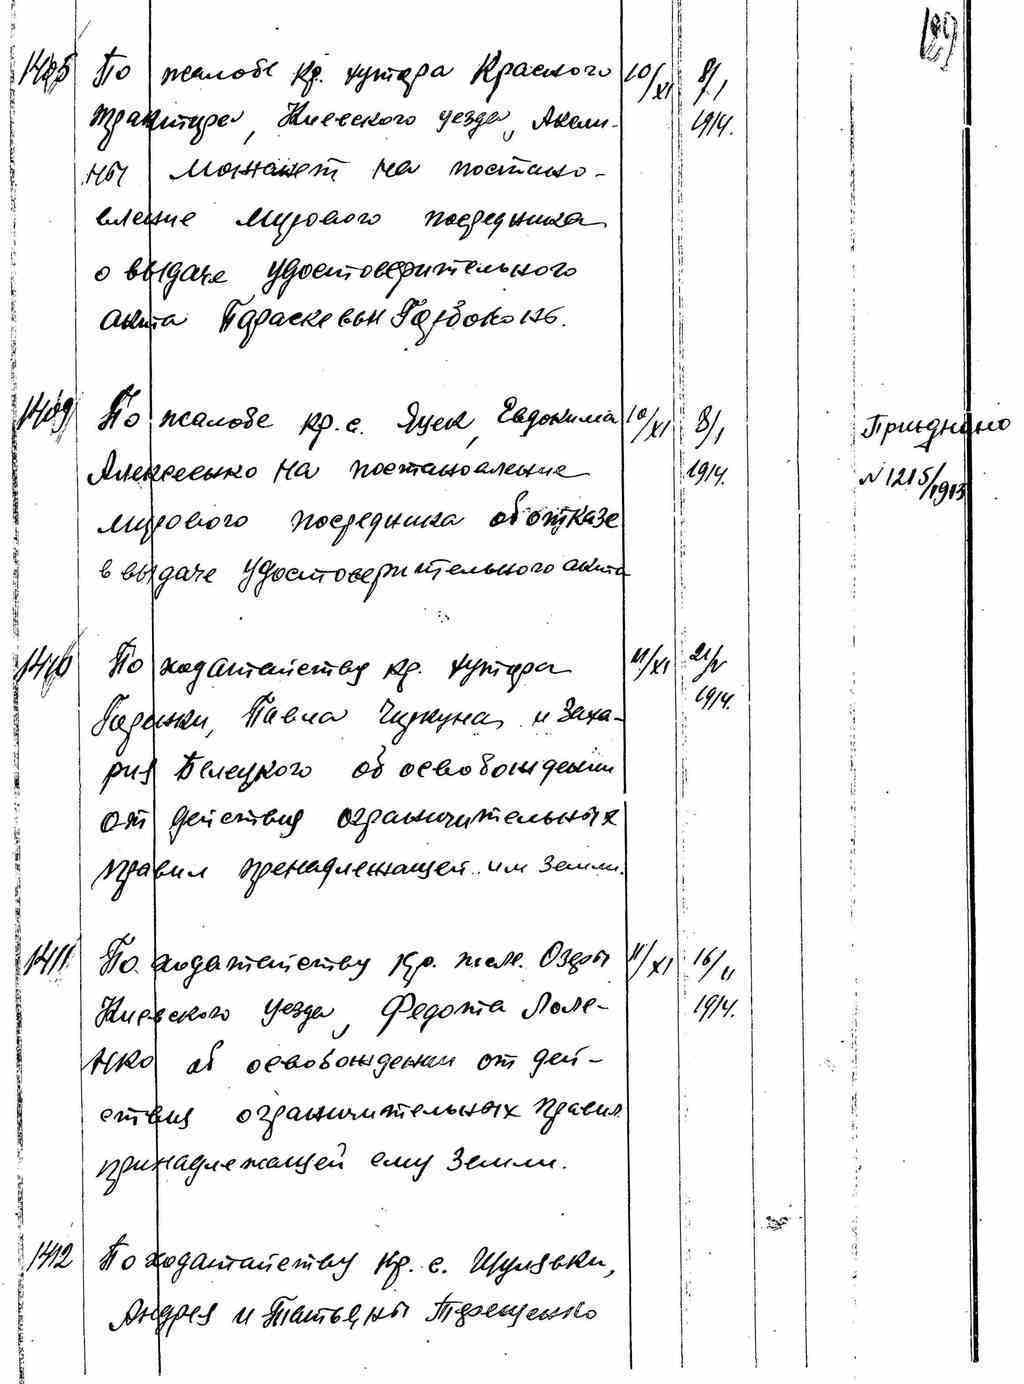 По жалобе кр. хутора Красного 10/XI 8/I
трактира, Киевского уезда, Акили- 1914.
ны Можнает на постано-
вление мирового посредника
о выдаче удостоверительного
акта Параскевьи
1409 По жалобе кр. с. Яцек, Евдокима 10/XI 8/I Приєднано
Алексеенко на постановление 1914. N 1215/1913
мирового посредника об отказе
в выдаче удостоверительного акта
1410 По ходатайству кр. хутора 11/XI 21/V
Гаринки, Павла Чиркуна и Заха- 1914.
рия Белецкого об освобождении
от действия ограничительных
правил пренадлежащей им земли.
1411 По ходатайству кр. мест. Озеры 11/XI 16/II
Киевского уезда, Федота Поле- 1914.
нко об освобождении от дей-
ствия ограничительных правил
принадлежащей ему земли.
1412 По ходатайству кр. с. Шулявки,
Андрея и Татьяны Трощенко